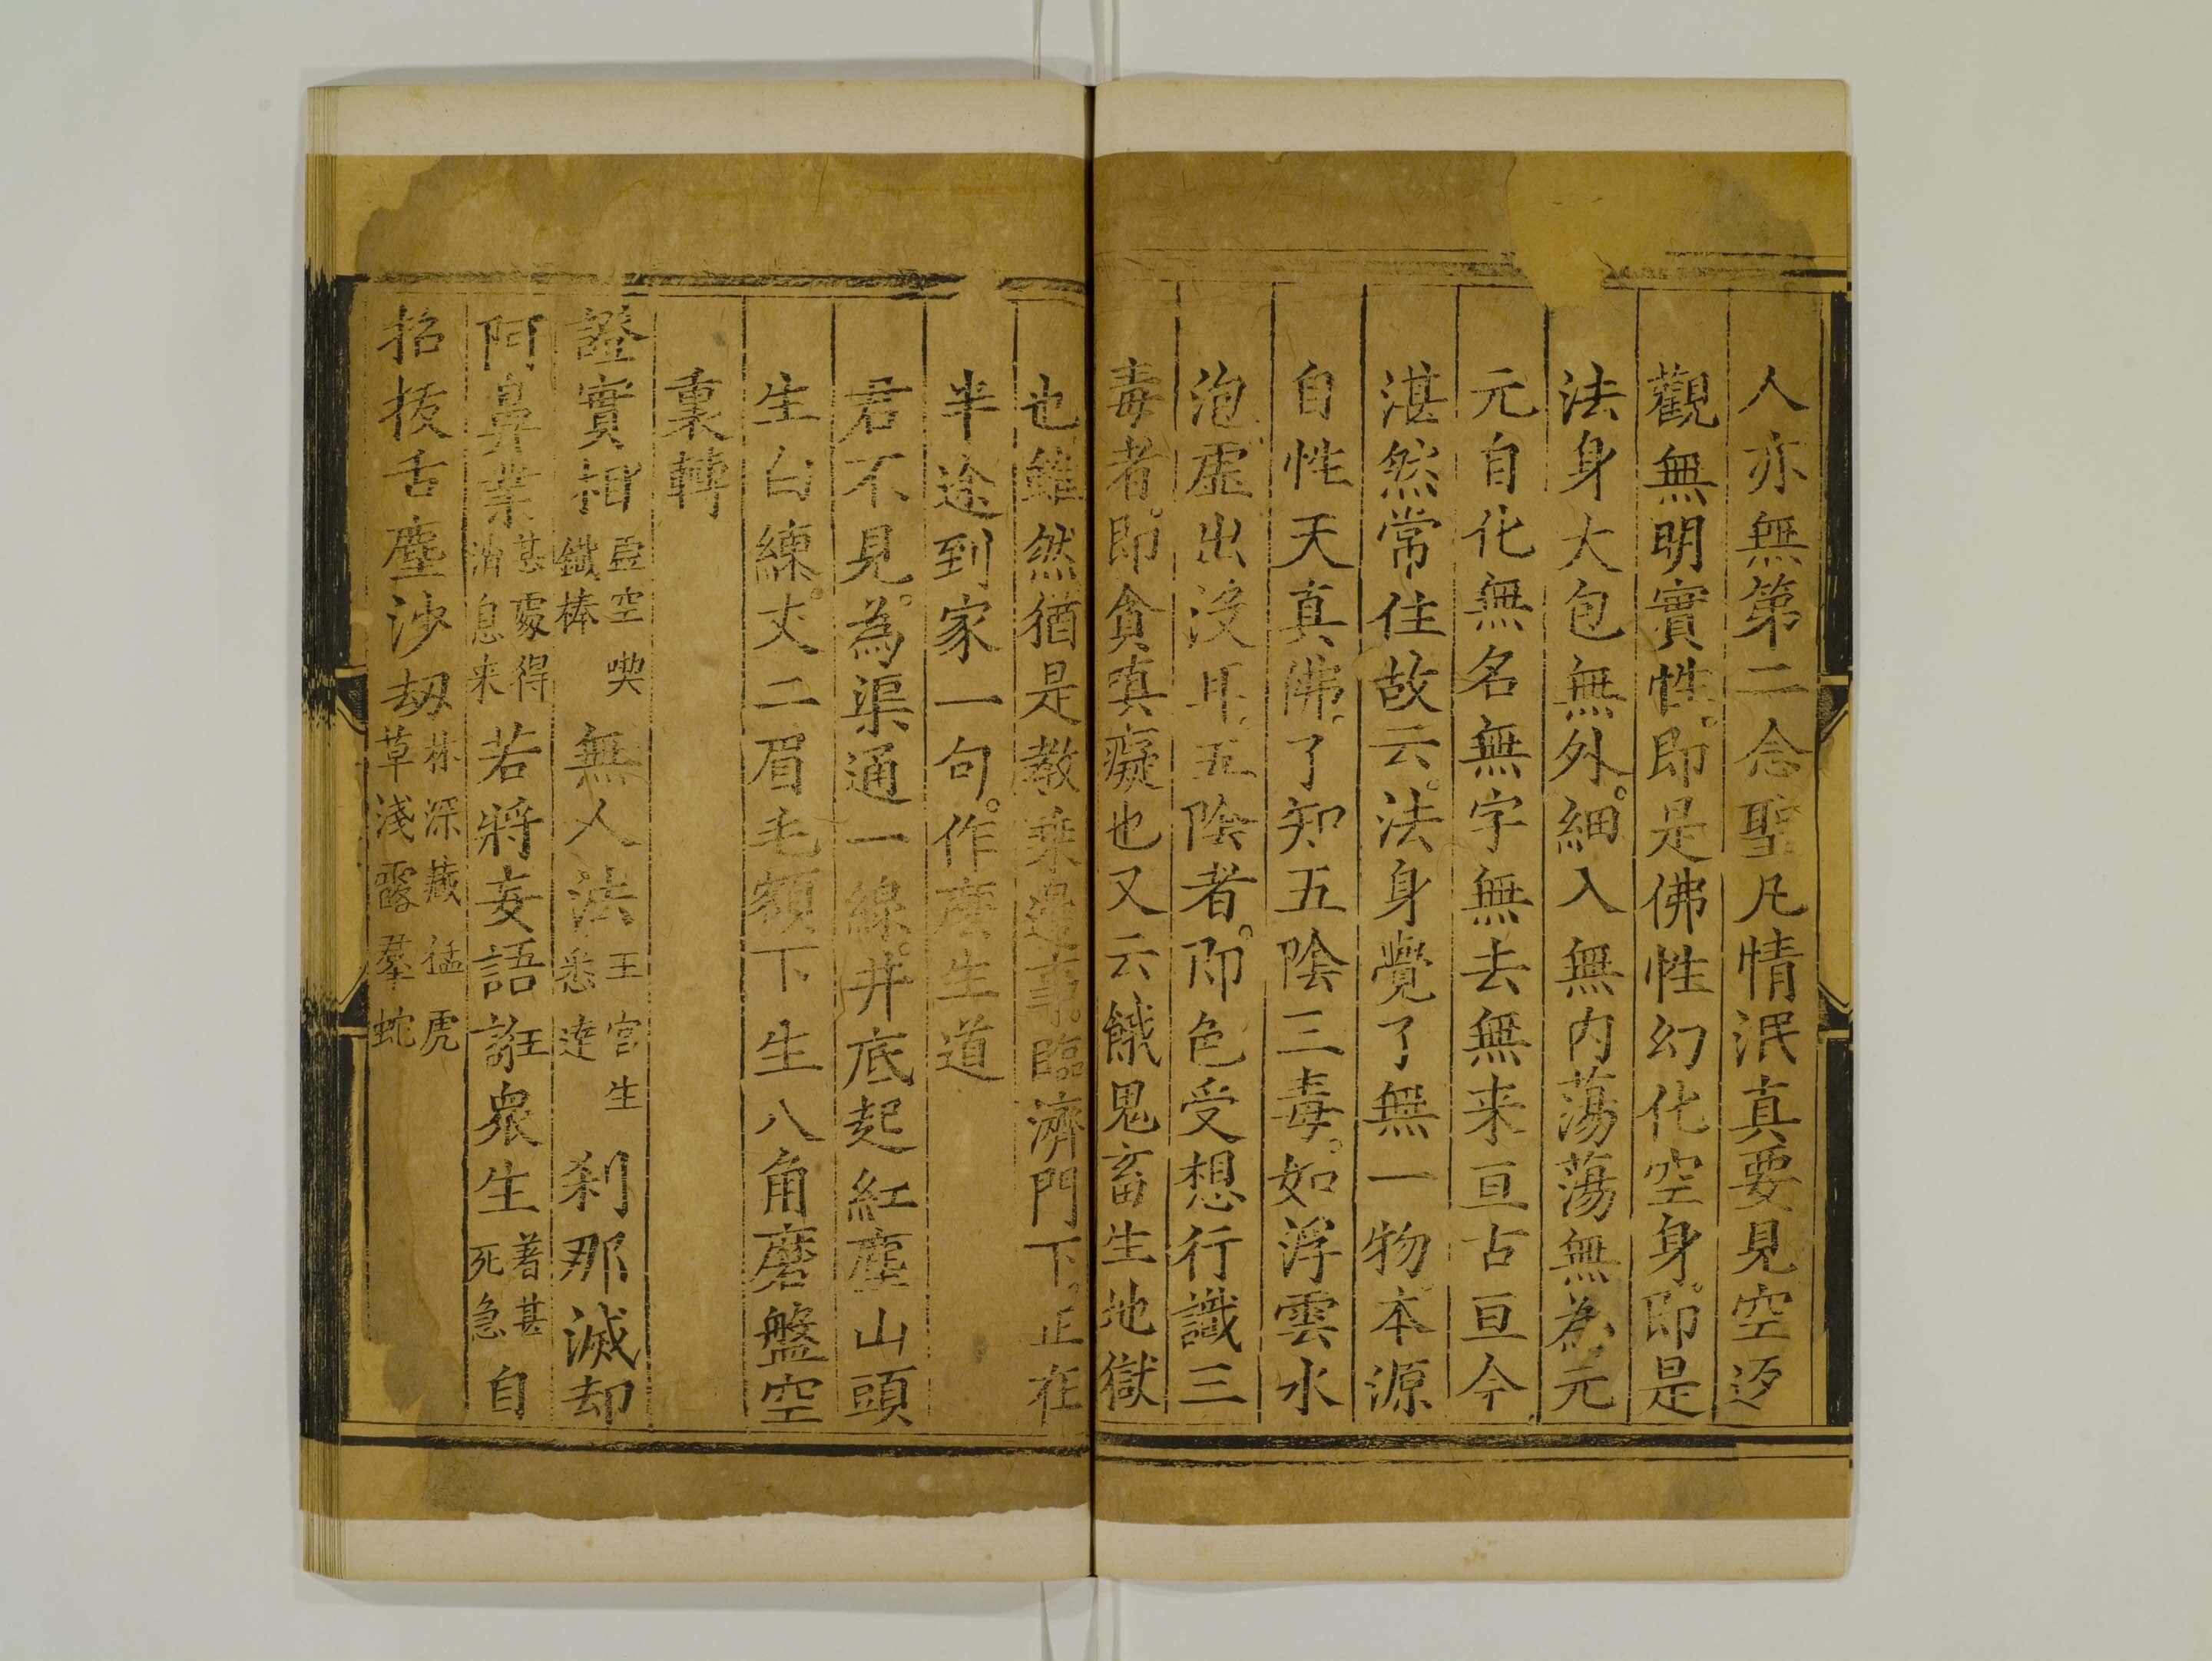 人亦無第二念聖凡情泯真要見空迹
觀無明實性。即是佛性幻化空身。即是
法身大包無外。細入無內蕩蕩無為元
元自化無名無字無去無来亘古亘今
湛然常住故云。法身覺了無一物。本源
自性天真佛。了知五陰三毒。如浮雲水
泡虛出沒耳。五陰者。即色受想行識三
毒者。即貪嗔癡也又云餓鬼畜生地獄
也雖然猶是教乗邊事。臨濟門下。正在
半途到家一句。作麽生道
君不見。為渠通一線。井底起紅塵山頭
生白練。丈二眉毛頷下生八角磨盤空
裏轉
證實相虛空喫鐵棒無人法王宮生悉達刹那滅却
阿鼻業甚處得消息来若將妄語誑衆生著甚死急自
招拔舌塵沙劫林深藏猛虎草淺露羣蛇